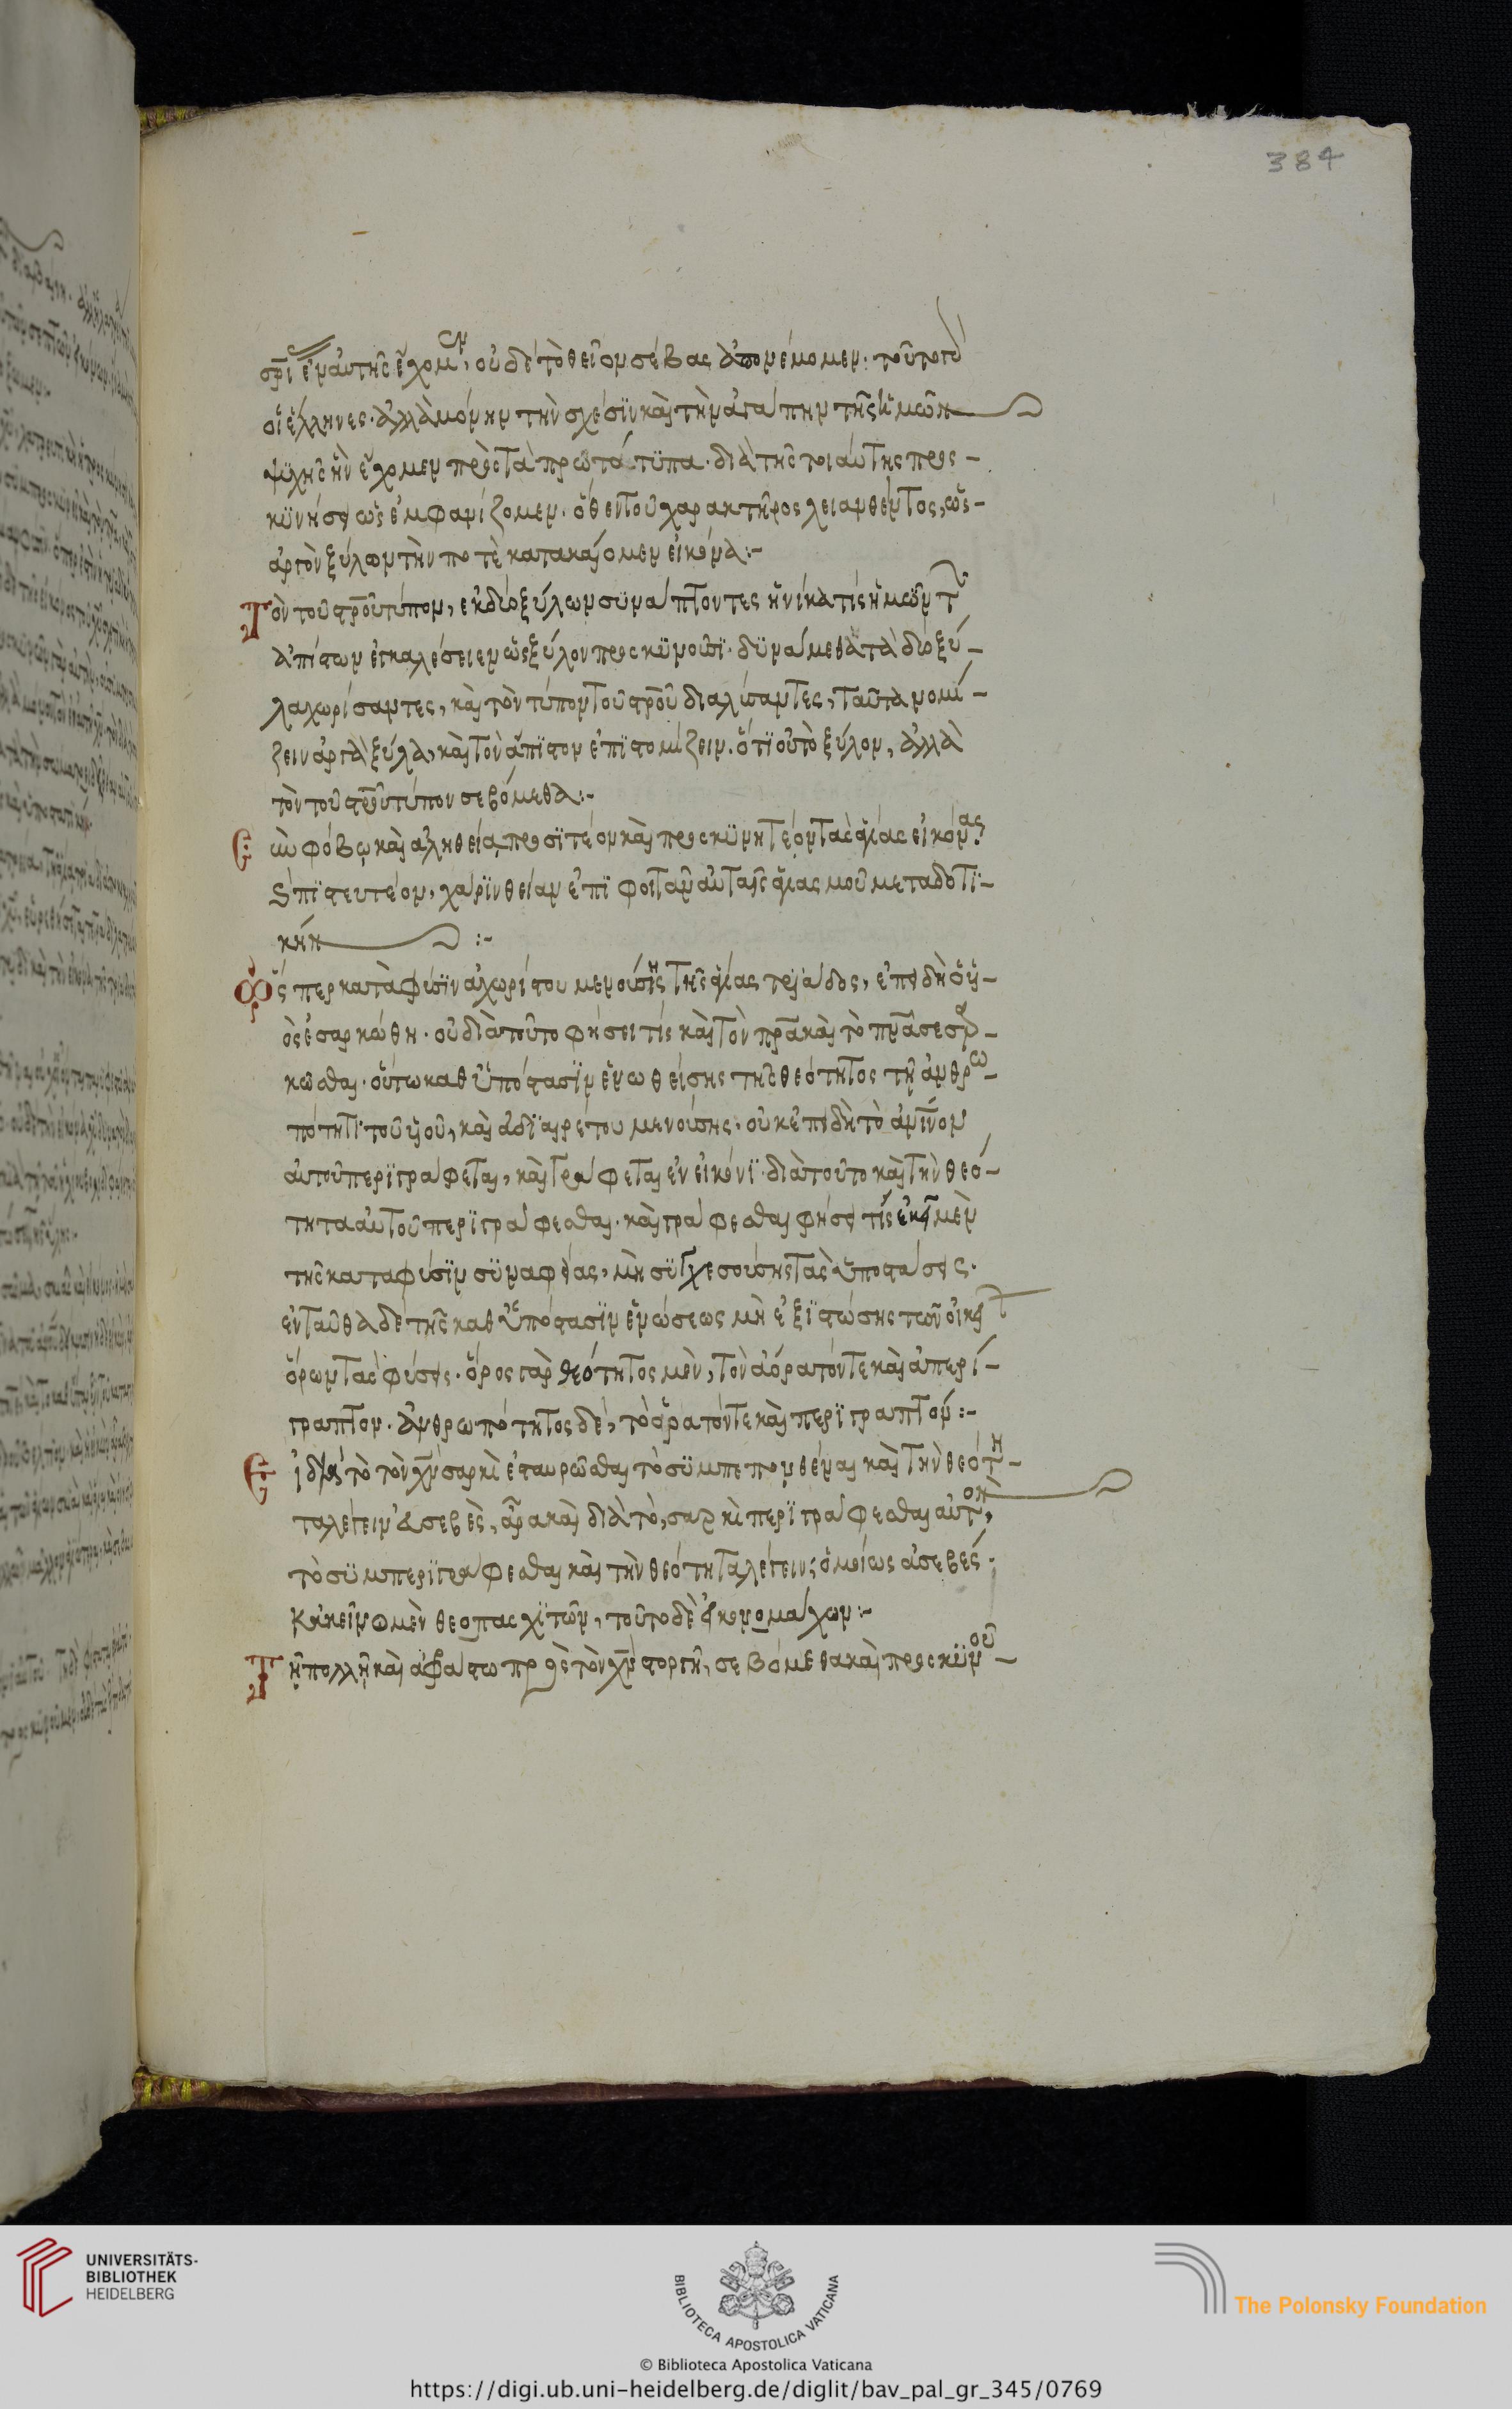 384
σρι ἐν αὐτῆς ἔχομεν, οὐδὲ τὸ θεῖον σέβας ἀπονέμομεν. τοῦτο γὰρ
οἱ ἕλληνες. ἀλλὰ μόνην τὴν σχέσϊν καὶ τὴν ἀγάπην τῆς ἡμῶν
ψϋχῆς ἣν ἔχομεν πρὸς τὰ πρωτότϋπα. διὰ τῆς τοιαύτης προς-
κϋνήσεως ἐμφανίζομεν. ὅθεν τοῦ χαρακτῆρος λειανθέντος, ὡς-
ἀργὸν ξύλον τὴν ποτὲ κατακαίομεν εἰκόνα:-
Τὸν τοῦ σροῦ τύπον, ἐκ δύο ξύλων συνάπτοντες ἡνίκα τίς ἡμῶν τ
ἀπίστων ἐγκαλέσειεν ὡς ξύλον προσκϋνοῦσϊ. δϋνάμεθα τὰ δύο ξύ-
λα χωρίσαντες, καὶ τὸν τύπον τοῦ σροῦ διαλύσαντες, ταῦτα νομί-
ζειν ἀργὰ ξύλα, καὶ τὸν ἄπϊστον ἐπϊστομίζειν. ὅτϊ οὐ τὸ ξύλον, ἀλλὰ
τὸν τοῦ σροῦ τύπον σεβόμεθα:-
Ἐν φόβω καὶ ἀληθεία προσϊτέον καὶ προσκϋνητέον τὰς ἁγίας εἰκόνας
ϛ πϊστευτέον, χάρϊν θείαν ἐπϊφοιτᾶν αὐταῖς ἁγιασμοῦ μεταδοτϊ-
κήν :-
Ὥσπερ κατὰ φύσϊν ἀχωρίστου μενούσης τῆς ἁγίας τριάδος, ἐπειδὴ ὁ ὑ-
ὸς ἐσαρκώθη. οὐ διὰ τοῦτο φήσει τίς καὶ τὸν πρα καὶ τὸ πνα σεσαρ-
κῶσθαι. οὕτω καθ ὑπόστασϊν ἑνωθείσης τῆς θεότητος τῆ ἀνθρω-
πότητϊ τοῦ ὑοῦ, καὶ ἀδϊαιρέτου μενούσης. οὐκ ἐπειδὴ τὸ ἀνινον
αὐτοῦ περϊγράφεται, καὶ γράφεται ἐν εἰκόνϊ. διὰ τοῦτο καὶ τὴν θεό-
τητα αὐτοῦ περϊγράφεσθαι. καὶ γράφεσθαι φήσει τίς ἐκεῖ μὲν
τῆς κατα φύσϊν σϋναφείας, μὴ σϋγχεούσης τὰς ὑποστάσεις.
ἐνταῦθα δὲ τῆς καθ ὑπόστασϊν ἑνώσεως μὴ ἐξϊστώσης τῶν οἰκεί
ὅρων τὰς φύσεις. ὅρος γὰρ θεότητος μὲν, τὸ ἀόρατόν τε καὶ ἀπερί-
γραπτον. ἀνθρωπότητος δὲ, τὸ ὁρατόν τε καὶ περϊγραπτόν:-
Εἰ διὰ τὸ τὸν χν σαρκὶ ἐσταυρῶσθαι τὸ σϋμπεπονθέναι καὶ τὴν θεότη-
τα λέγειν ἀσεβὲς, ἄρα καὶ διὰ τὸ, σαρκὶ περϊγράφεσθαι αὐτὸν,
τὸ σϋμπερϊγράφεσθαι καὶ τὴν θεότητα λέγειν; ὁμοίως ἀσεβές.
Κἀκεῖνο μὲν θεοπασχϊτῶν, τοῦτο δὲ εἰκονομάχων:-
Τῆ πολλῆ καὶ ἀφάτω πρὸς τὸν χν στοργῆ, σεβόμεθα καὶ προσκϋνοῦ-
UNIVERSITÄTS-
BIBLIOTHEK
HEIDELBERG
BIBLIOTECA APOSTOLICA VATICANA
The Polonsky Foundation
© Biblioteca Apostolica Vaticana
https://digi.ub.uni-heidelberg.de/diglit/bav_pal_gr_345/0769